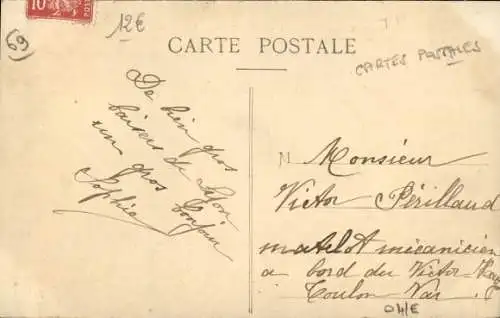 10
POSTES
12€
69
CARTE POSTALE
CARTES POSTALES
De bien gros
baisers de Lyon
un gros bonjour
Sophie
M Monsieur
Victor Périllaud
matelot mécanicien
a bord du Victor Hugo
Toulon Var